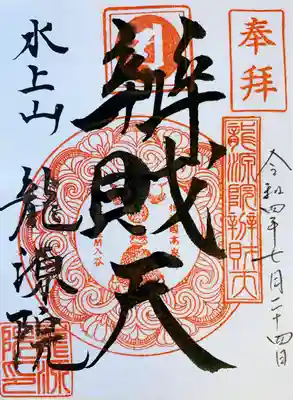 奉拝
龍源院辨財天
令和四年七月二十四日
辨財天
水上山
龍源院
龍源院印